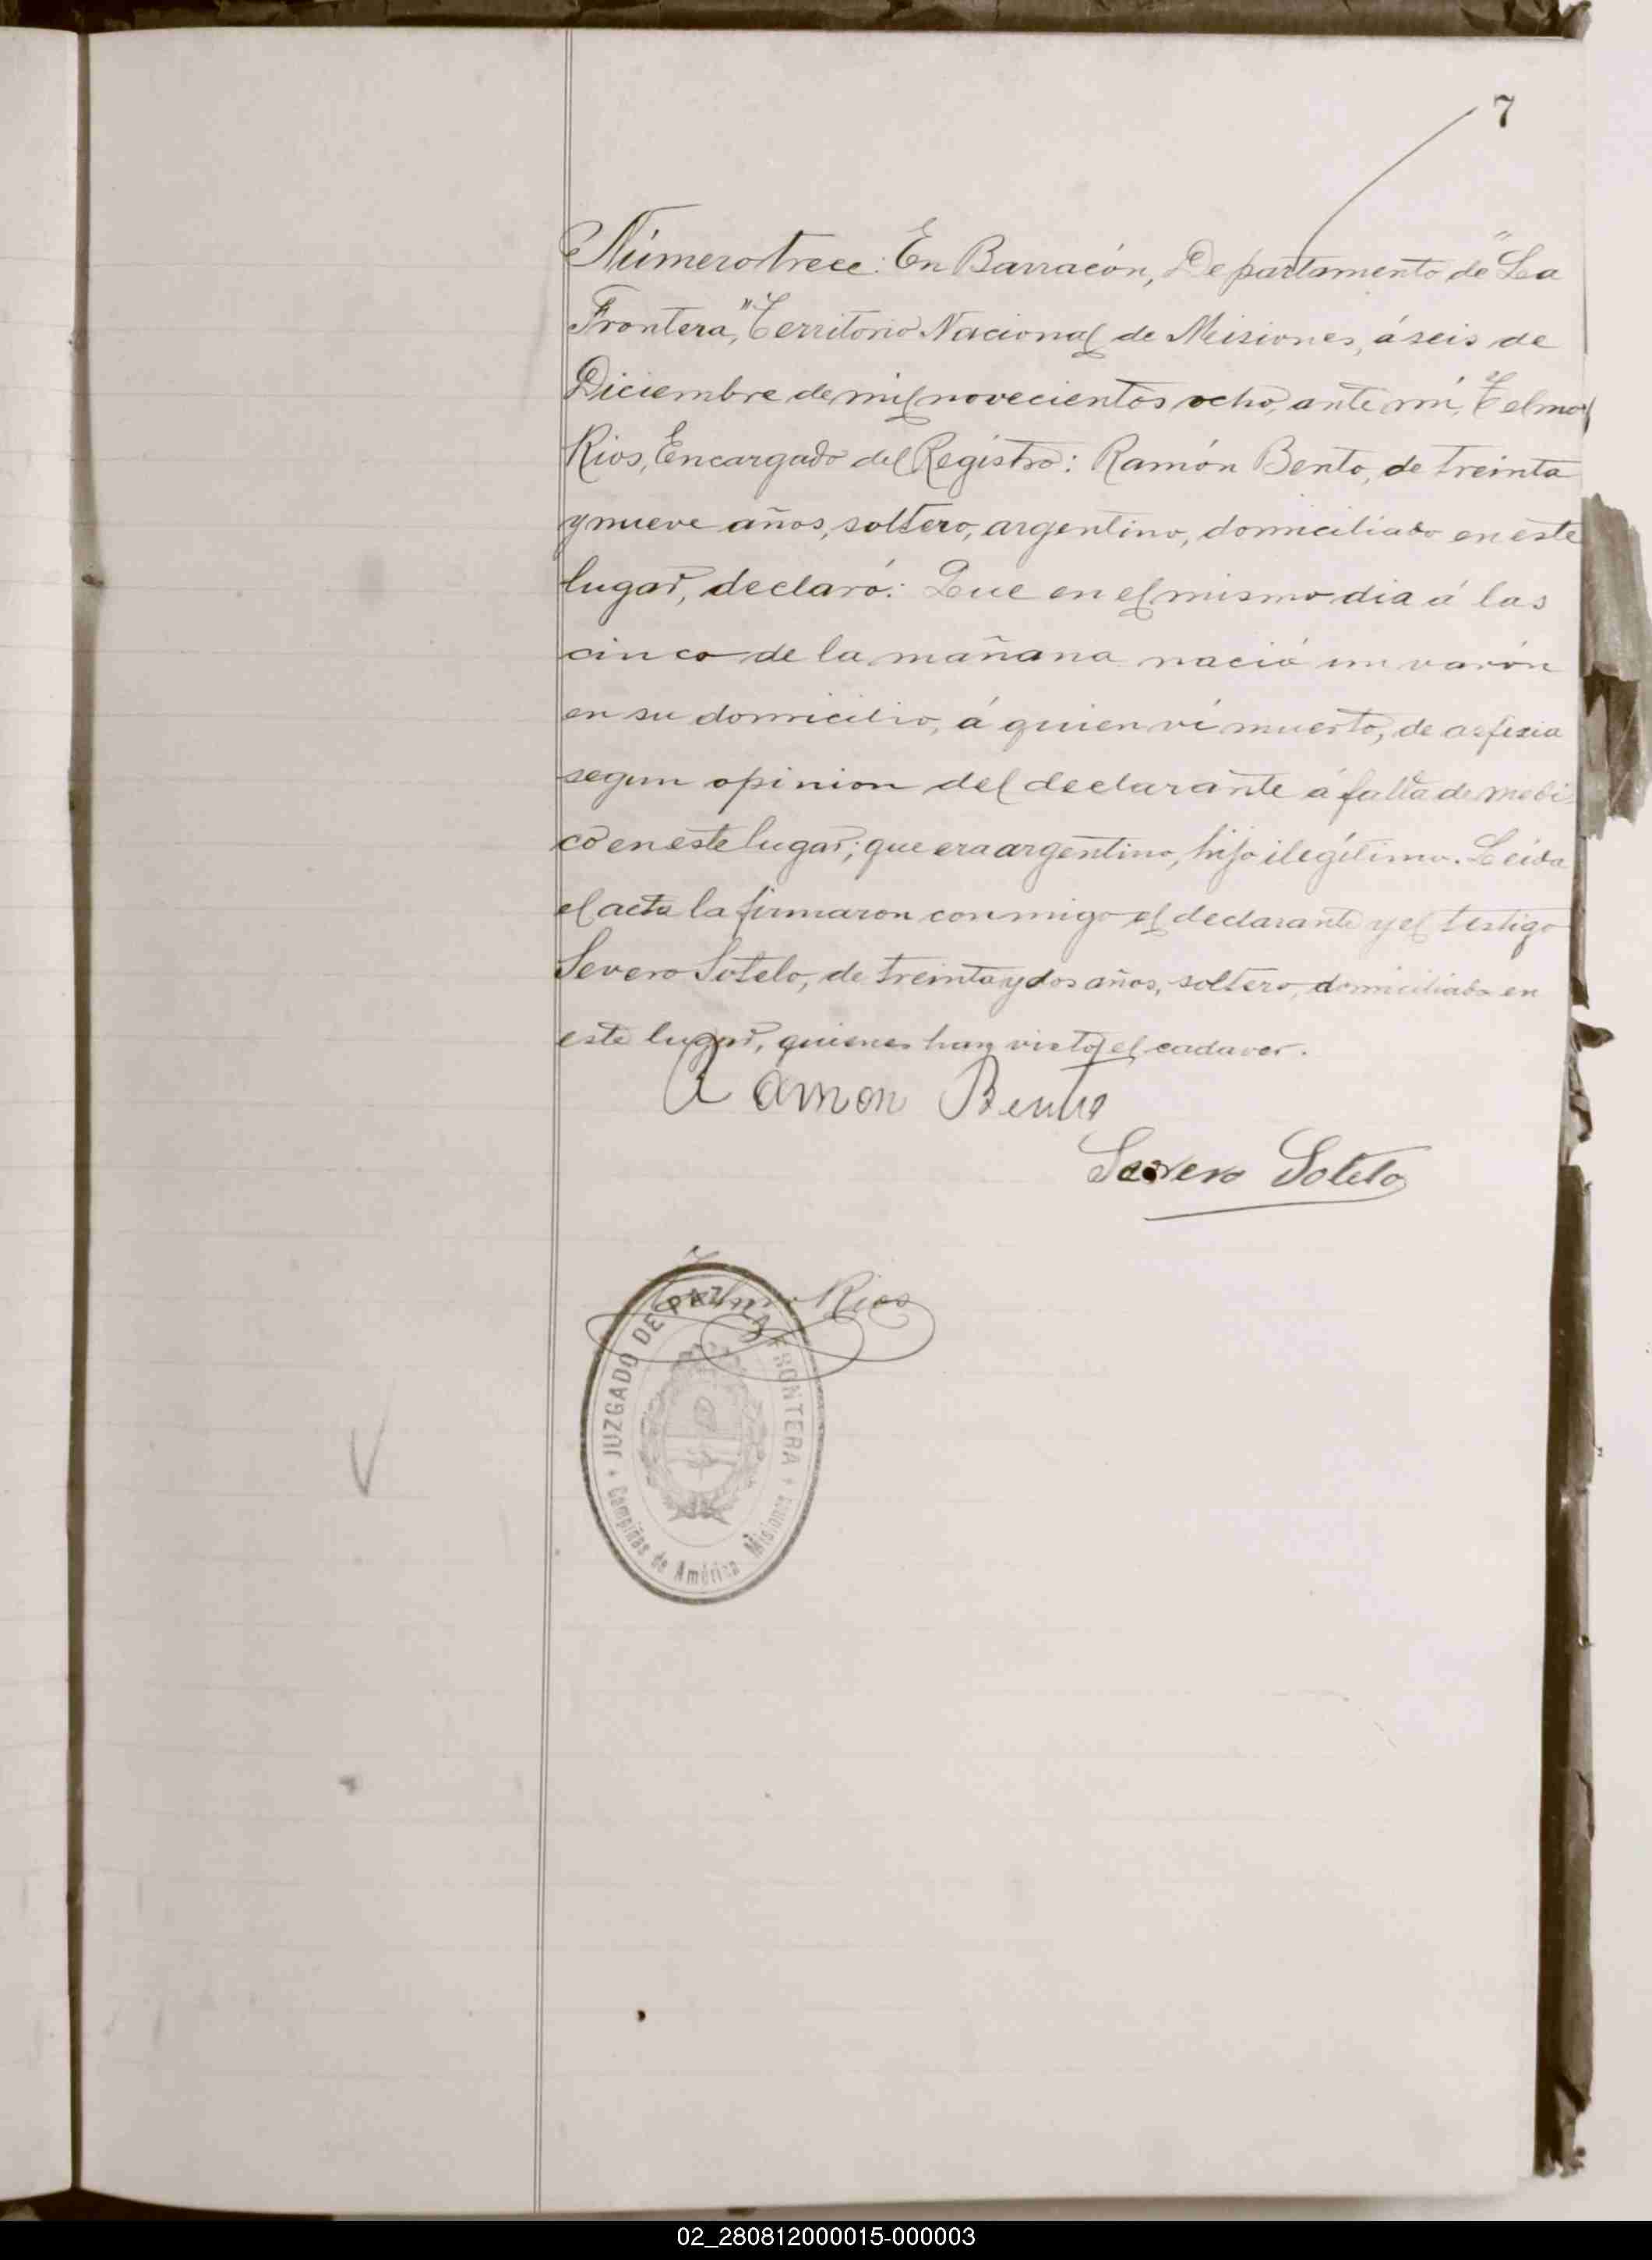 7
Número trece: En Barracón, Departamento de "La
Frontera," Territorio Nacional de Misiones, á seis de
Diciembre de mil novecientos ocho, ante mí, Telmo
Rios, Encargado del Registro: Ramón Bento, de treinta
y nueve años, soltero, argentino, domiciliado en este
lugar, declaró: Que en el mismo dia á las
cinco de la mañana nació un varón
en su domicilio, á quien ví muerto, de asfixia
segun opinion del declarante á falta de medi
co en este lugar; que era argentino, hijo ilegítimo. Leida
el acta la firmaron conmigo el declarante y el testigo
Severo Sotelo, de treinta y dos años, soltero, domiciliado en
este lugar, quienes han visto el cadaver.
Ramon Bento
Severo Sotelo
Telmo Rios
JUZGADO DE PAZ LA FRONTERA
Campiñas de América Misiones
02_280812000015-000003